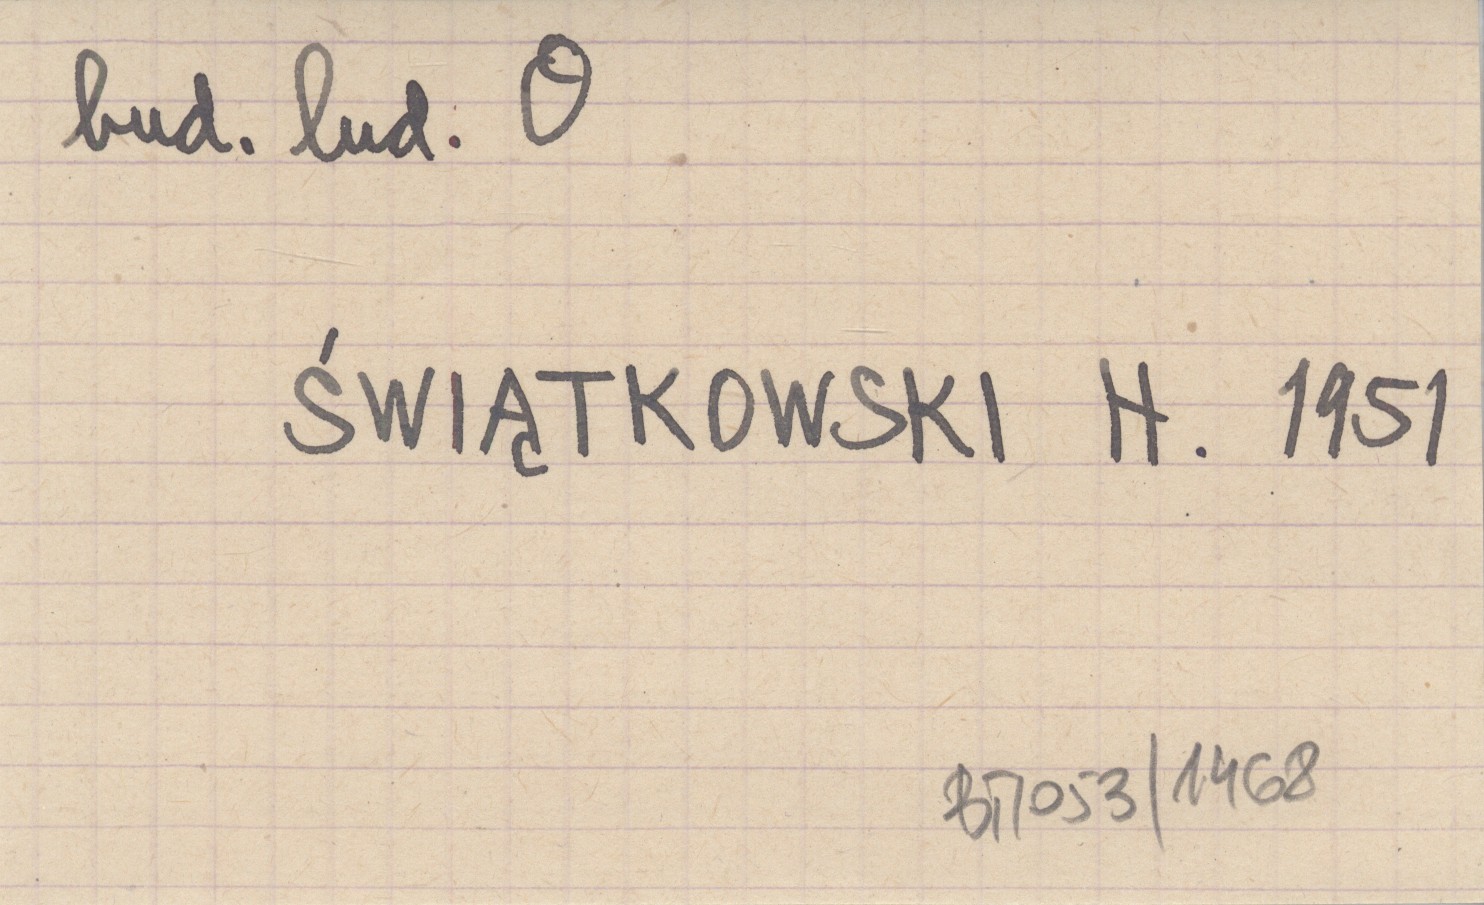 bud. lud. O
ŚWIĄTKOWSKI H. 1951
BП053/1468